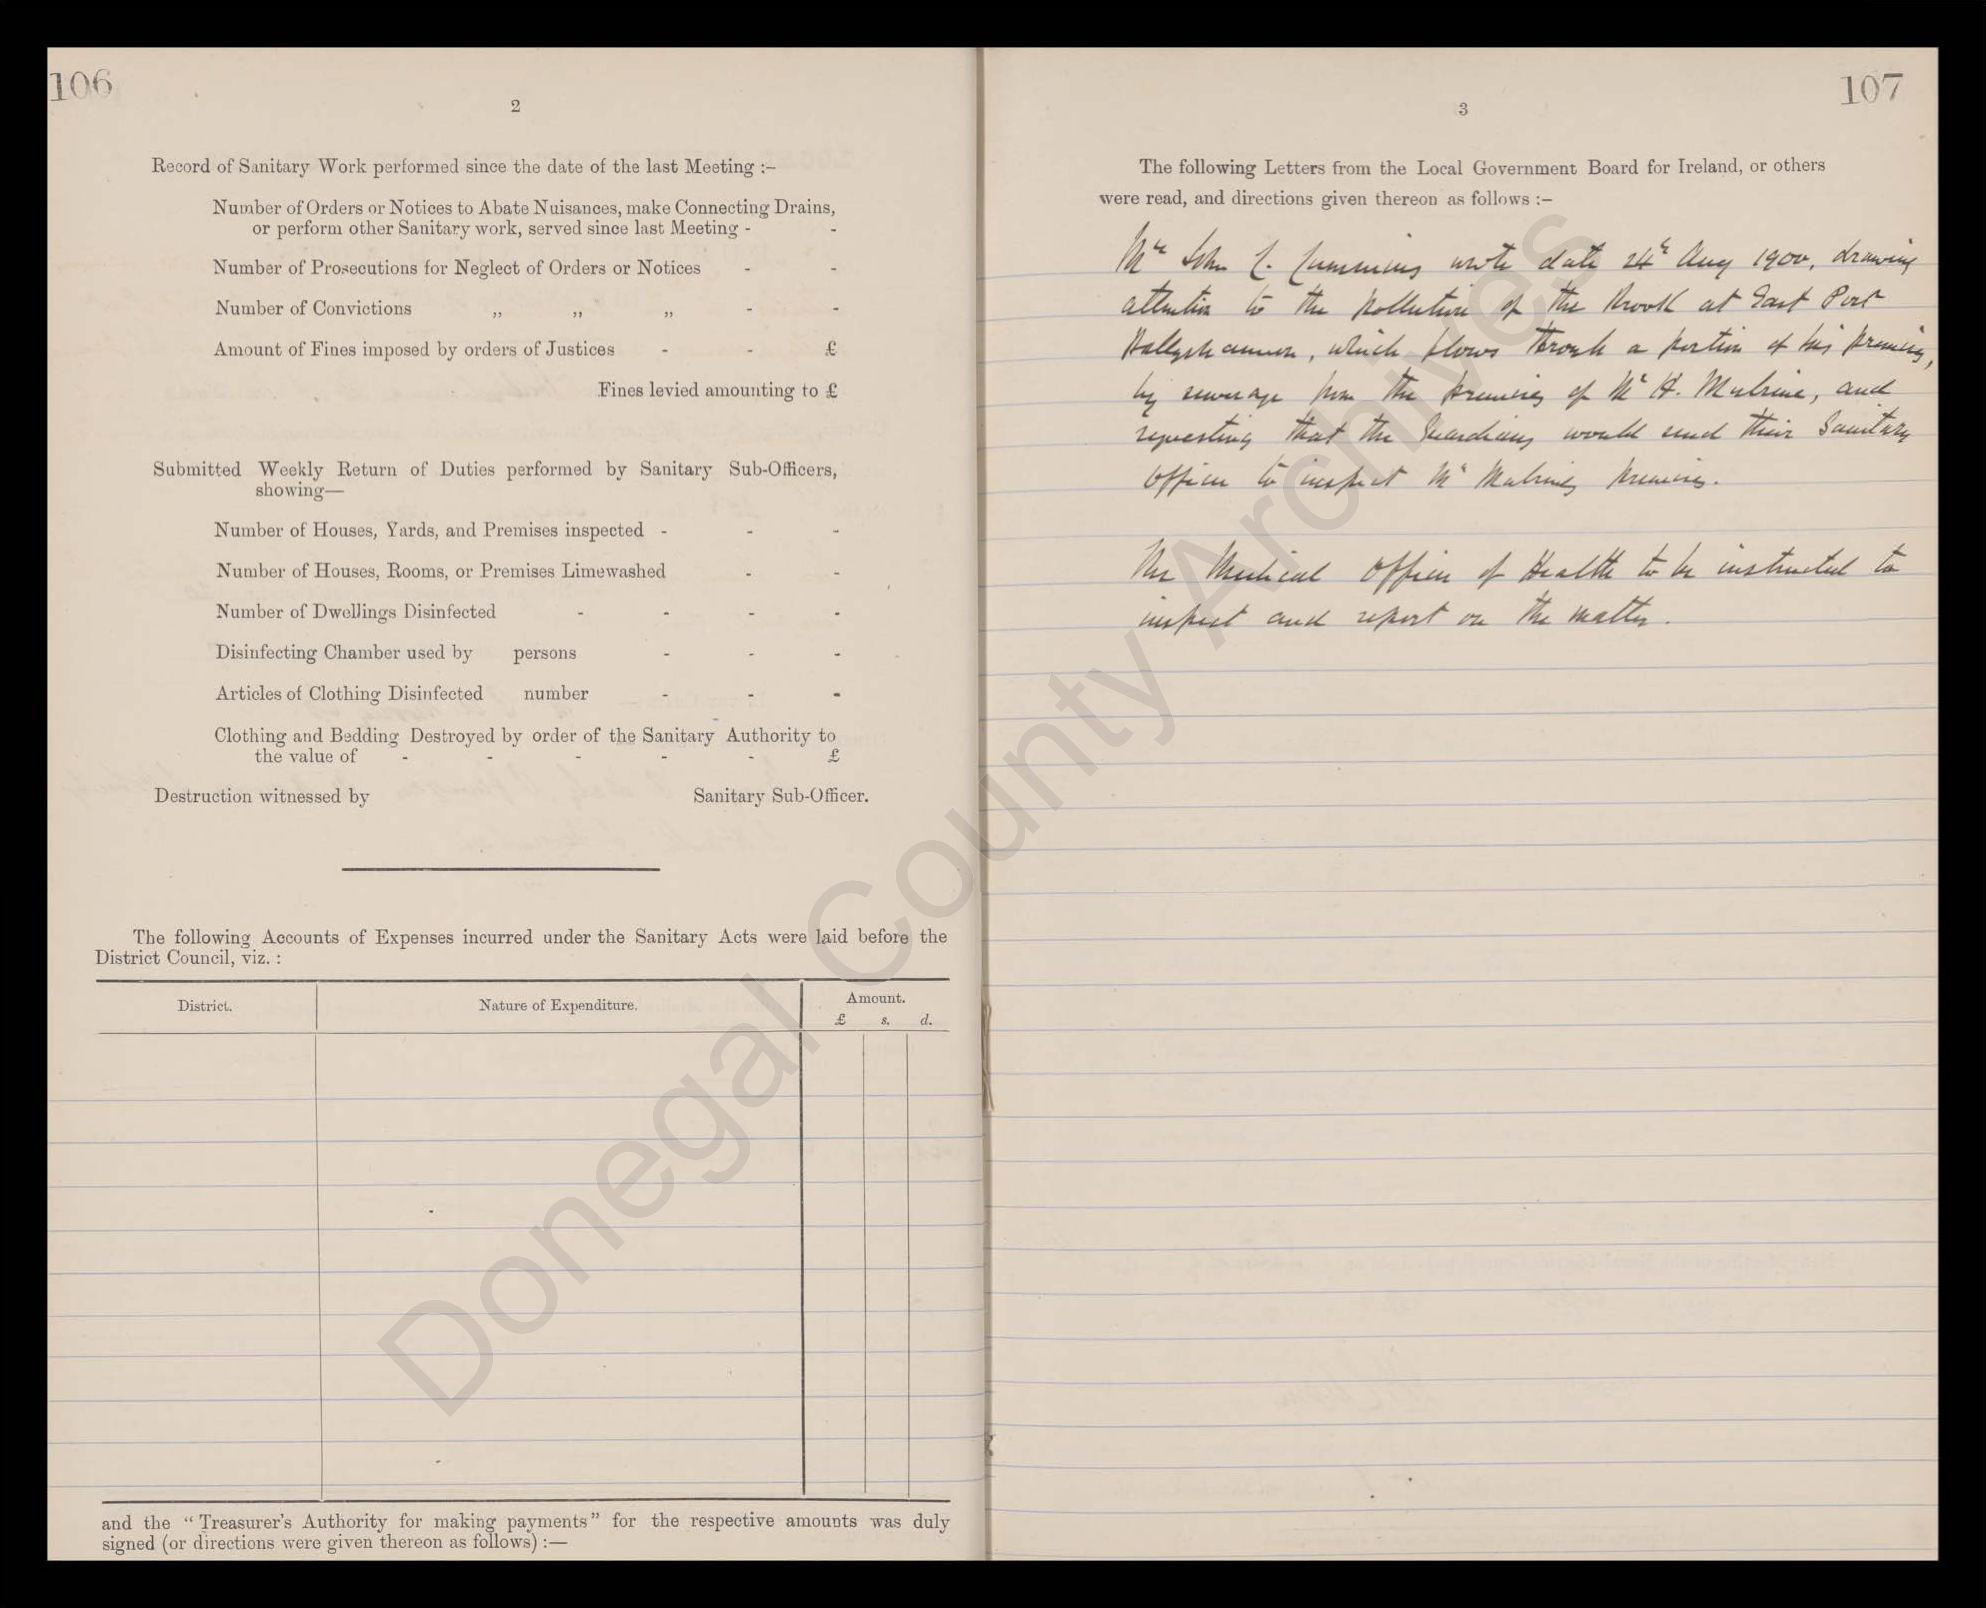 106
2
Record of Sanitary Work performed since the date of the last Meeting :–
Number of Orders or Notices to Abate Nuisances, make Connecting Drains,
or perform other Sanitary work, served since last Meeting - -
Number of Prosecutions for Neglect of Orders or Notices - -
Number of Convictions ,, ,, ,, - -
Amount of Fines imposed by orders of Justices - - £
Fines levied amounting to £
Submitted Weekly Return of Duties performed by Sanitary Sub-Officers,
showing—
Number of Houses, Yards, and Premises inspected - - -
Number of Houses, Rooms, or Premises Limewashed - -
Number of Dwellings Disinfected - - - -
Disinfecting Chamber used by persons - - -
Articles of Clothing Disinfected number - - -
Clothing and Bedding Destroyed by order of the Sanitary Authority to
the value of - - - - - £
Destruction witnessed by Sanitary Sub-Officer.
The following Accounts of Expenses incurred under the Sanitary Acts were laid before the
District Council, viz. :
District. Nature of Expenditure. Amount.
£ s. d.
and the “Treasurer's Authority for making payments” for the respective amounts was duly
signed (or directions were given thereon as follows) :—
107
3
The following Letters from the Local Government Board for Ireland, or others
were read, and directions given thereon as follows :–
Mr John C. Cummins wrote date 24th Aug 1900, drawing
attention to the pollution of the Brook at East Port
Ballyshannon, which flows through a portion of his premises,
by sewerage from the premises of Mr H. Mulrine, and
requesting that the Guardians would send their Sanitary
Officer to inspect Mr Mulrines premises.
The Medical Officer of Health to be instructed to
inspect and report on the matter.
Donegal County Archives